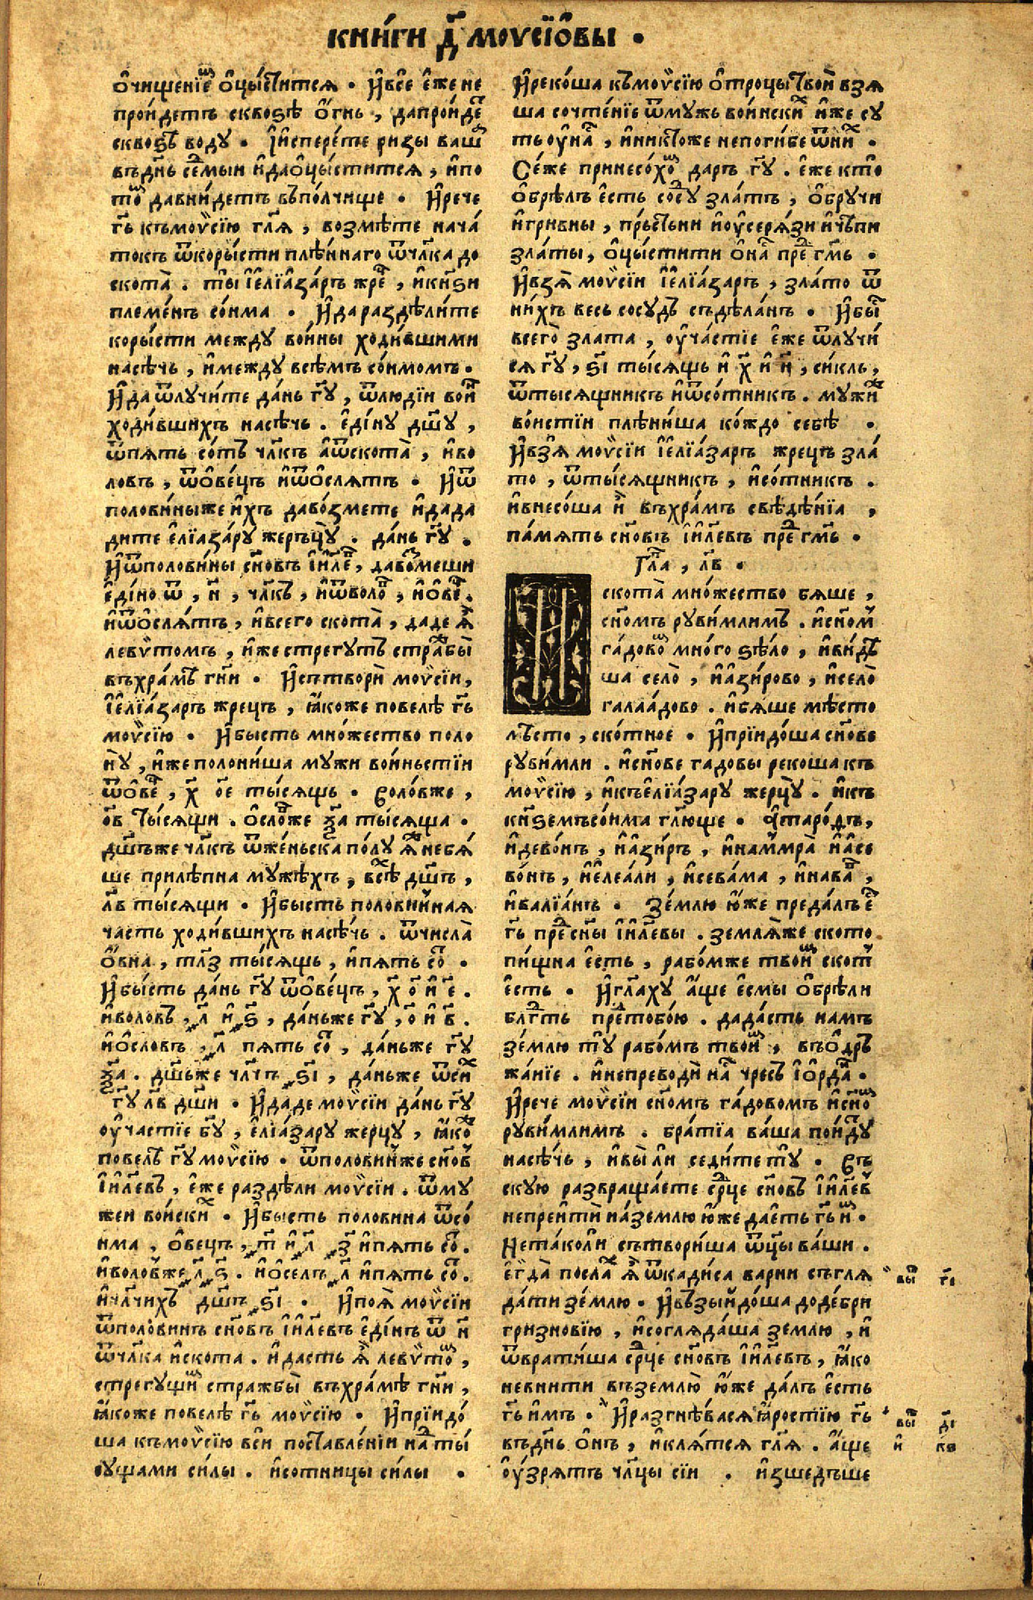 книги д҃ моѵсїѡвы .
ѻчищенїеⷨ ѻцыститсѧ . И҆ все є҆же не
пройдетъ сквоѕѣ ѻгнь , да пройдеⷮ
сквоѕѣ водꙋ . И҆ исперете ризы вашѧ
въ днь семыи и҆ да ѻцыститсѧ , и҆ по
тоⷨ да внидетъ въ полчище . И҆ рече
гь҃ къ моѵсїю гл҃ѧ , возмѣте нача
токъ ѿ корысти плѣннаго ѿ чл҃ка до
скота . ты і҆ є҆лїазаръ жреⷰ , и҆ кнѧѕи
племенъ сонма . И҆ да раздѣлите
корысти междꙋ войны ходившими
на сѣчь , и҆ междꙋ всѣмъ сонмомъ .
И҆ да ѿлꙋчите дань гꙋ҃ , ѿ людїи войⷩ
ходившихъ на сѣчь . є҆динꙋ дш҃ꙋ ,
ѿ пѧть сотъ чл҃къ а҆ ѿ скота , и҆ во
ловъ , ѿ ѻвецъ и҆ ѿ ѻслѧтъ . И҆ ѿ
половины же и҆хъ да возмете и҆ дада
дите є҆лїазарꙋ жерьцꙋ . дань гꙋ҃ .
И҆ ѿ половины сн҃овъ і҆ил҃еⷡ , да воⷥмеши
є҆дино ѿ , н҃ , чл҃къ , и҆ ѿ волоⷡ , и҆ ѻвеⷰ .
и҆ ѿ ѻслѧтъ , и҆ всего скота , даде ѧ҆
левѵтомъ , и҆же стрегꙋтъ стражбы
въ храмѣ гн҃и . И҆ сътвори моѵсїи ,
І҆ є҆лїазаръ жрецъ , ꙗ҆коже повелѣ гь҃
моѵсїю . И҆ бысть множество поло
нꙋ , и҆же полониша мꙋжи войньстїи
ѿ ѻвеⷰ , х҃ ѻ҃е тысѧщь . воловже ,
о҃в тысѧщи . ѻслоⷡже ѯ҃а тысѧща .
дш҃ьже чл҃къ ѿ женьска полꙋ ꙗ҆ⷤ не бѧ
ше прилѣпна мꙋжѣхъ , всѣⷯ дш҃ъ ,
л҃в тысѧщи . И҆ бысть половиннаѧ
часть ходившихъ на сѣчь . ѿ числа
ѻвна , тл҃з тысѧщь , и҆ пѧть сⷮо .
И҆ бысть дань гꙋ҃ ѿ ѻвецъ , х҃ о҃ и҆ е҃ .
и҆ воловъ , л҃ и҆ ѕ҃ , даньже гꙋ҃ , о҃ и҆ в҃ .
и҆ ѻсловъ , л҃ пѧть сⷮо , даньже гꙋ҃
ѯ҃а . дш҃ьже чл҃чъ ѕ҃і , даньже ѿ сиⷯ
гꙋ҃ л҃в дш҃и . И҆ даде моѵсїи дань гꙋ҃
ѹчастїе бг҃ꙋ , є҆лїазарꙋ жерцꙋ , ꙗ҆коⷤ
повелѣ гꙋ҃ моѵсїю . ѿ половинꙑже сн҃овъ
І҆ил҃евъ , є҆же раздѣли моѵсїи . ѿ мꙋ
жеи войскиⷯ . И҆ бысть половина ѿ со
нма , ѻвецъ , т҃ и҆ л҃ з҃ и҆ пѧть сⷮо .
и҆ воловже л҃ ѕ҃ . и҆ ѻселъ л҃ и҆ пѧть сⷮо .
и҆ чл҃чихъ дш҃ъ ѕ҃і . И҆ поѧ моѵсїи
ѿ половинъ сн҃овъ і҆ил҃евъ є҆динъ ѿ н҃
ѿ чл҃ка и҆ скота . и҆ дасть ѧ҆ левѵтоⷨ ,
стрегꙋщиⷨ стражбы въ храмѣ гн҃и ,
ꙗ҆коже повелѣ гь҃ моѵсїю . И҆ прїидо
ша къ моѵсїю вси поставленїи на ты
сꙋщами силы . и҆ сотницы силы .
И҆ рекоша къ моѵсїю ѻтроцы твои взѧ
ша сочтенїе ѿ мꙋжь войскиⷯ и҆же сꙋ
ть ѹ наⷭ , и҆ никтоже не погибе ѿ ниⷯ .
Се же принесохоⷨ даръ гꙋ҃ . є҆же кто
ѻбрѣлъ є҆сть сосꙋⷣ златъ , ѻбрꙋчи
и҆ гривны , пръстьни и҆ ѹсерѧзи и҆ чѣпи
златы , ѻцыстити ѻ наⷭ преⷣ гм҃ь .
И҆ взѧ моѵсїи і҆ є҆лїазаръ , злато ѿ
нихъ весь сосꙋдъ съдѣланъ . И҆ быⷭ
всего злата , ѹчастїе є҆же ѿлꙋчи
сѧ гꙋ҃ , ѕ҃і тысѧщь и҆ х҃ и҆ н҃ , сикль ,
ѿ тысѧщникъ и҆ ѿ сотникъ . мꙋжиⷤ
воистїи плѣниша кождо себѣ .
И҆ взѧ моѵсїи і҆ є҆лїазаръ жрецъ зла
то , ѿ тысѧщникъ , и҆ сотникъ .
и҆ внесоша и҆ въ храмъ свѣдѣнїа ,
памѧть сн҃овъ і҆ил҃евъ преⷣ гм҃ь .
Глⷡа , л҃в .
И҆
скота множество бѧше ,
сн҃омъ рꙋвимлимъ . и҆ сн҃омⷨ
гадовоⷨ много ѕѣло , и҆ видѣ
ша село , и҆ а҆зирово , и҆ село
галаадово . и҆ бѧше мѣсто
мѣсто , скотное . И҆ прїидоша сн҃ове
рꙋвимли . и҆ сн҃ове гадовы рекоша къ
моѵсїю , и҆ къ є҆лїазарꙋ жерцꙋ . и҆ къ
кнѧѕемъ сонма гл҃юще . а҆тародъ ,
и҆ девонъ , и҆ а҆зиръ , и҆ намⷨра и҆ а҆се
вонъ , и҆ є҆леали , и҆ севама , и҆ наваⷡ ,
и҆ валїанъ . землю ю҆же предалъ єⷭ
гь҃ преⷣ сн҃ы і҆ил҃евы . землѧже ското
пищна є҆сть , рабомже твоимⷨ скотⷮ
є҆сть . И҆ гл҃ахꙋ а҆ще є҆смы ѻбрѣли
блгⷣть преⷣ тобою . да дасть намъ
землю тꙋ рабомъ твоиⷨ , въ ѻдръ
жанїе . и҆ не преводи наⷭ чресъ і҆ѻрдаⷩ .
И҆ рече моѵсїи сн҃омъ гадовомъ и҆ сн҃оⷨ
рꙋвимлимъ . братїа ваша пойдꙋ
на сѣчь , и҆ вы ли седите тꙋ . Въ
скꙋю развращаете срⷣце сн҃овъ і҆ил҃евⷡ
не преити на землю ю҆же даетъ гь҃ иⷨ .
Не тако ли сътвориша ѿцы ваши .
є҆гда послаⷯ ѧ҆ ѿ кадиса варни съглѧ
дати землю . И҆ възыйдоша до дебри
гризновїю , и҆ соглѧдаша землю , и҆
ѿвратиша срⷣце сн҃овъ і҆ил҃евъ , ꙗ҆ко
не внити въ землю ю҆же далъ є҆сть
гь҃ и҆мъ . И҆ разгнѣвасѧ ꙗ҆ростїю гь҃
въ днь ѻнъ , и҆ клѧтсѧ гл҃ѧ . а҆ще
ѹзрѧтъ чл҃цы сїи . и҆зшедъше
выⷲ г҃і
выⷲ д҃і
и҆ к҃в